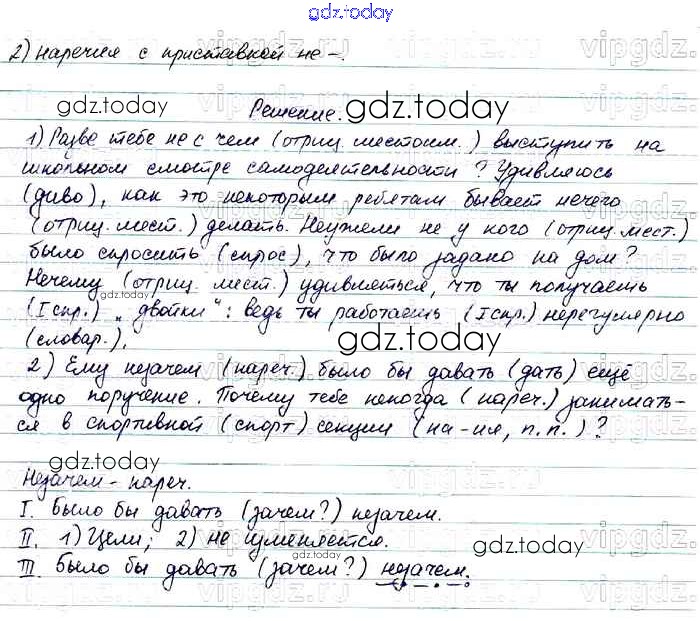 gdz.today
2) наречия с приставкой не-.
gdz.today
Решение. gdz.today
1) Разве тебе не с чем (отриц. местоим.) выступить на
школьном смотре самодеятельности? Удивляюсь
(диво), как это некоторым ребятам бывает нечего
(отриц. мест.) делать. Неужели не у кого (отриц. мест.)
было спросить (спрос), что было задано на дом?
Нечему (отриц. мест.) удивляться, что ты получаешь
gdz.today
(I спр.) „двойки“: ведь ты работаешь (I спр.) нерегулярно
(словар.).
gdz.today
2) Ему незачем (нареч.) было бы давать (дать) ещё
одно поручение. Почему тебе некогда (нареч.) занимать-
ся в спортивной (спорт) секции (на -ия, п.п.)?
gdz.today
Незачем - нареч.
I. Было бы давать (зачем?) незачем.
II. 1) Цели; 2) не изменяется.
gdz.today
III. Было бы давать (зачем?) незачем.
gdz.today
vipgdz.ru
vipgdz.ru
vipgdz.ru
vipgdz.ru
vipgdz.ru
vipgdz.ru